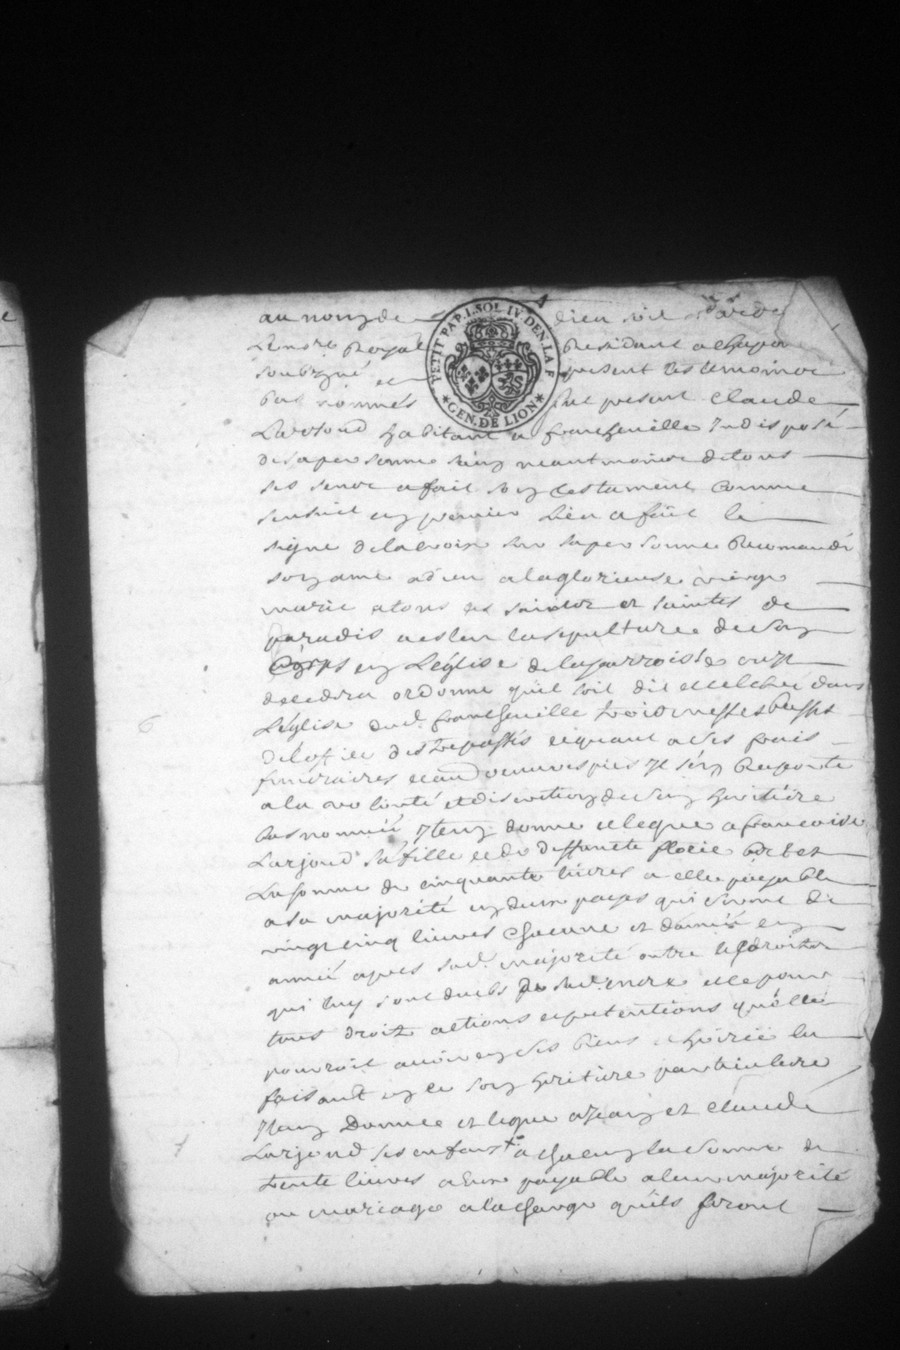 au nom de dieu soit
PETIT PAP. I. SOL. IV. DEN. LA F.
GEN. DE LION
Royal Residant a
soubzigné et present les temoins
bas nommés fut present claude
Larjoud habitant a francheuille Indisposé
de sa personne sain neantmoins de tous
ses sence a fait son testament comme
sensuit en premier lieu a fait le
signe de la croix sur sa personne Recomandé
son ame a dieu a la glorieuse vierge
marie a tous les saints et saintes de
paradis a eslu la sepulture de son
Corps en L'église de la parroisse ou Jl
decedera ordonne quil soit dit et celebré dans
L'église dud. francheuille trois messes basses
de l'office des trepassés et quant a ses frais
funeraires et autres œuvres pies Jl s'en Raporte
a la volonté et discretion de son heritiere
bas nommée Jtem donne et legue a francoise
Larjoud sa fille et de deffuncte
La somme de cinquante livres a elle payable
a sa majorité en deux payes qui seront de
vingt cinq livres chacune et d'année en
année apres sad. majorité outre les droits
qui luy sont deubs de sad. mere et ce pour
tous droits actions et pretentions qu'elle
pourroit avoir en ses biens et hoirie la
faisant en ce son heritiere particuliere
Jtem Donne et legue a Jean et claude
Larjoud ses enfans a chacun la somme de
trente livres a eux payable a leur majorité
ou mariage a la charge qu'ils seront